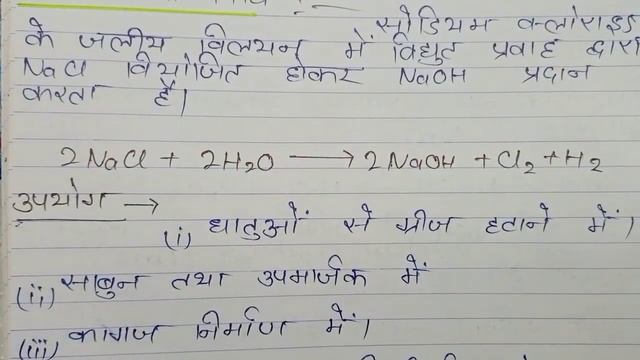 सोडियम क्लोराइड
के जलीय विलयन में विद्युत प्रवाह द्वारा
NaCl वियोजित होकर NaOH प्रदान
करता है।
2NaCl + 2H2O ⟶ 2NaOH + Cl2 + H2
उपयोग →
(i) धातुओं से ग्रीज हटाने में।
(ii) साबुन तथा उपमार्जक में
(iii) कागज निर्माण में।